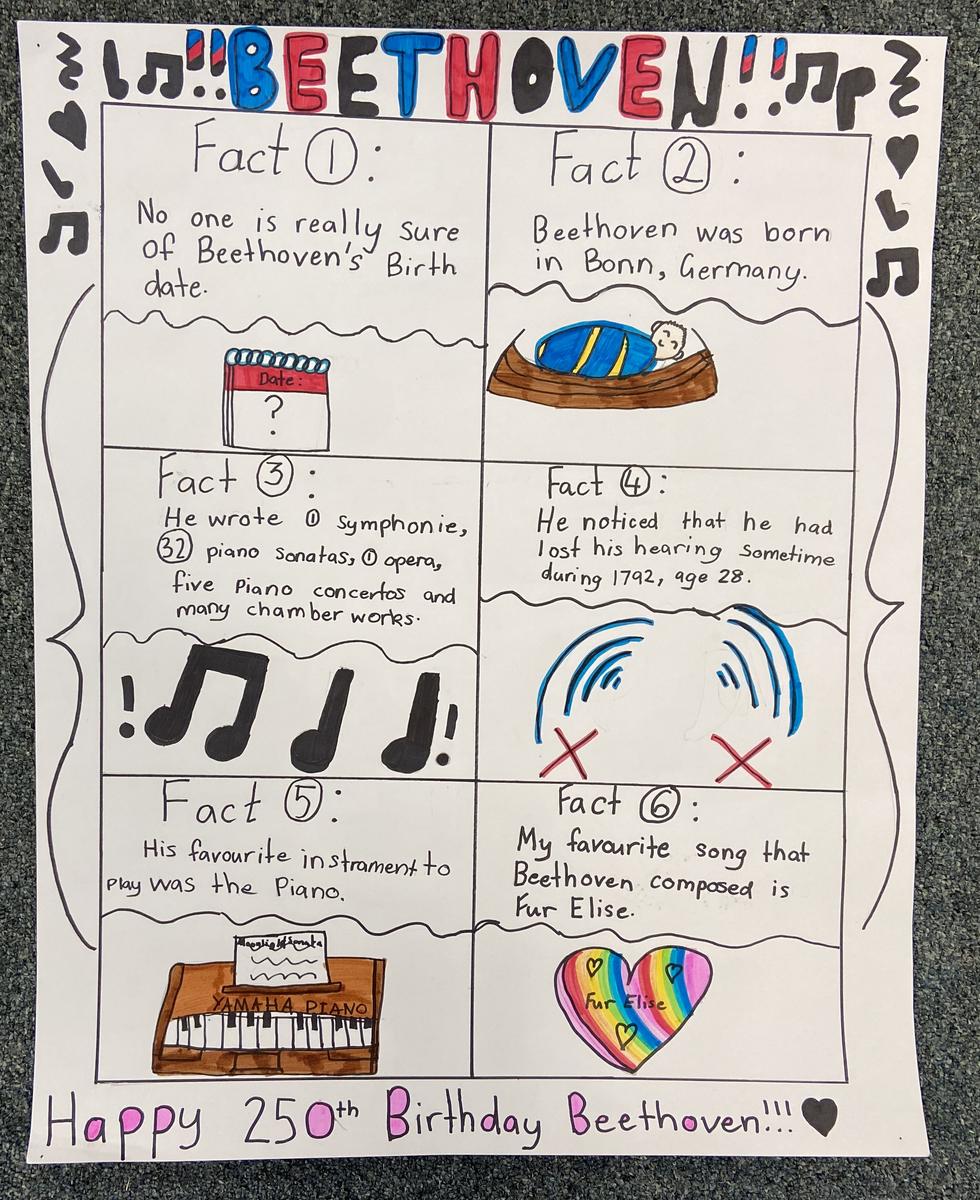 !!BEETHOVEN!!
Fact 1:
No one is really sure
of Beethoven's Birth
date.
Date:
?
Fact 2:
Beethoven was born
in Bonn, Germany.
Fact 3:
He wrote 1 symphonie,
32 piano sonatas, 1 opera,
five Piano concertos and
many chamber works.
! !
Fact 4:
He noticed that he had
lost his hearing sometime
during 1792, age 28.
Fact 5:
His favourite instrament to
play was the Piano.
Moonlight Sonata
YAMAHA PIANO
Fact 6:
My favourite song that
Beethoven composed is
Fur Elise.
Fur Elise
Happy 250th Birthday Beethoven!!!